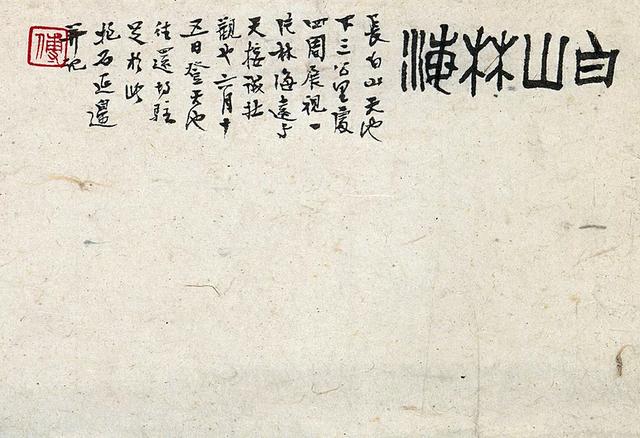 白山林海
長白山天池
下三公里處
四周展視一
片林海遠与
天接誠壯
觀也六月十
五日登天池
往還均駐
足於此
抱石延邊
并記
傅